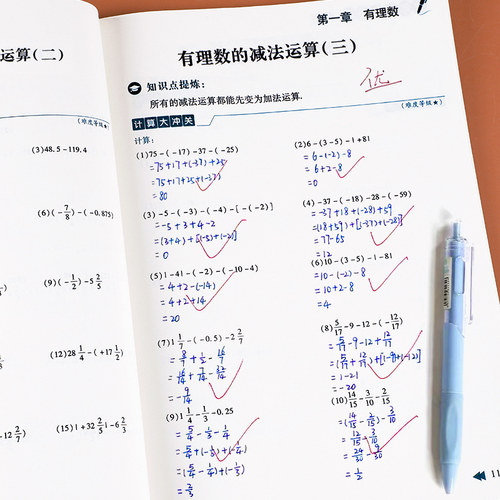 第一章 有理数
运算(二)
(3)48.5-119.4
(6)(-7/8)-(-0.875)
(9)(-1/2)-5 2/5
(12)28 1/4-(+17 1/2)
(15)1+32 2/5-6 2/3
有理数的减法运算(三)
优
知识点提炼:
所有的减法运算都能先变为加法运算.
(难度等级★)
计算大冲关
(难度等级★)
计算:
(1)75-(-17)-37-(-25)
=75+17+(-37)+25
=75+17+25+(-37)
=80
(2)6-(3-5)-|+8|
=6-(-2)-8
=6+2-8
=0
(3)-5-(-3)-(-4)-[-(-2)]
=-5+3+4-2
=(3+4)+[(-5)+(-2)]
=0
(4)-37-(-18)-28-(-59)
=-37+18+(-28)+59
=(18+59)+[(-37)+(-28)]
=77-65
=12
(5)|-4|-(-2)-(-10-4)
=4+2-(-14)
=4+2+14
=20
(6)10-(3-5)-|-8|
=10-(-2)-8
=10+2-8
=4
(7)1 1/7-(-0.5)-2 2/7
=8/7+1/2-16/7
=16/14+7/14-32/14
=-9/14
(8)5/17-9-12-(-12/17)
=5/17-9-12+12/17
=(5/17+12/17)+[(-9)+(-12)]
=1-21
=-20
(9)1 1/4-1/3-0.25
=5/4-1/3-1/4
=5/4+(-1/3)+(-1/4)
=(5/4-1/4)+(-1/3)
=2/3
(10)14/15-3/10-2/15
=(14/15-2/15)-3/10
=12/15-3/10
=24/30-9/30
=1/2
11